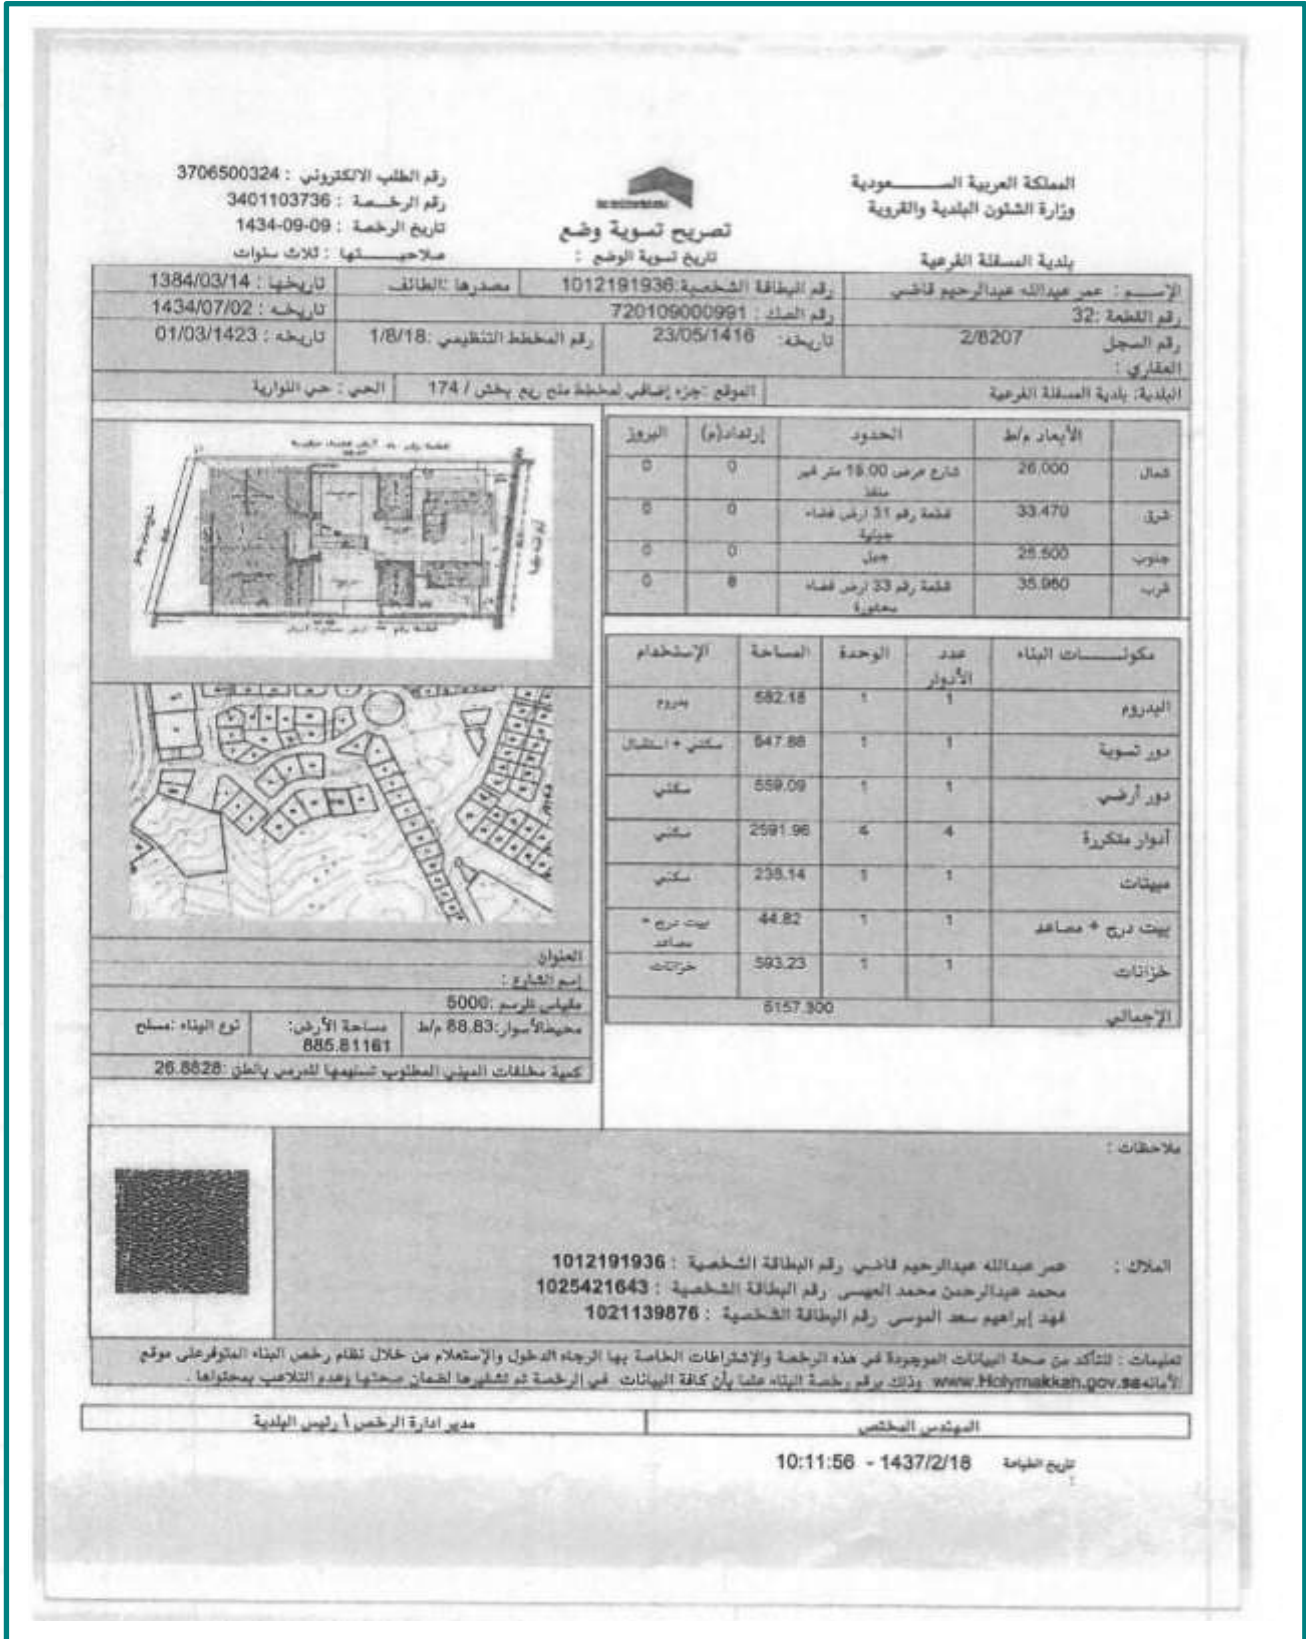 المملكة العربية الســـــعودية
وزارة الشئون البلدية والقروية
بلدية المسفلة الفرعية
تصريح تسوية وضع
تاريخ تسوية الوضع :
رقم الطلب الالكتروني : 3706500324
رقم الرخـــصة : 3401103736
تاريخ الرخصة : 1434-09-09
صلاحيـــــتها : ثلاث سنوات
الإســـم : عمر عبدالله عبدالرحيم قاضي رقم البطاقة الشخصية:1012191936 مصدرها :الطائف تاريخها : 1384/03/14
رقم القطعة :32 رقم الصك : 720109000991 تاريخه : 1434/07/02
رقم السجل العقاري : 2/8207 تاريخه: 23/05/1416 رقم المخطط التنظيمي :1/8/18 تاريخه : 01/03/1423
البلدية: بلدية المسفلة الفرعية الموقع :جزء إضافي لمخطط ملح ريع بخش / 174 الحي : حي النوارية
الأبعاد م/ط الحدود إرتداد(م) البروز
شمال 26.000 شارع عرض 18.00 متر غير منفذ 0 0
شرق 33.470 قطعة رقم 31 ارض فضاء 0 0
جنوب 25.500 جبل 0 0
غرب 35.960 قطعة رقم 33 ارض فضاء 8 0
مكونـــــات البناء عدد الأدوار الوحدة المساحة الإستخدام
البدروم 1 1 582.18 بدروم
دور تسوية 1 1 547.88 سكني + استقبال
دور أرضي 1 1 559.09 سكني
أدوار متكررة 4 4 2591.96 سكني
مبيتات 1 1 238.14 سكني
بيت درج + مصاعد 1 1 44.82 بيت درج + مصاعد
خزانات 1 1 593.23 خزانات
الإجمالي 5157.300
العنوان
إسم الشارع :
مقياس للرسم :5000
محيطالأسوار:88.83 م/ط مساحة الأرض: 885.81161 نوع البناء :مسلح
كمية مخلفات المبنى المطلوب تسليمها للمرمى بالطن :26.8828
ملاحظات :
الملاك : عمر عبدالله عبدالرحيم قاضي رقم البطاقة الشخصية : 1012191936
محمد عبدالرحمن محمد العيسى رقم البطاقة الشخصية : 1025421643
فهد إبراهيم سعد الموسى رقم البطاقة الشخصية : 1021139876
تعليمات : للتأكد من صحة البيانات الموجودة في هذه الرخصة والإشتراطات الخاصة بها الرجاء الدخول والإستعلام من خلال نظام رخص البناء المتوفرعلى موقع
الأمانهwww.Holymakkah.gov.sa وذلك برقم رخصة البناء علما بأن كافة البيانات في الرخصة تم تشفيرها لضمان صحتها وعدم التلاعب بمحتواها .
المهندس المختص مدير ادارة الرخص \ رئيس البلدية
تاريخ الطباعة : 1437/2/18 - 10:11:56